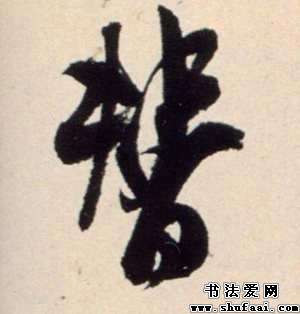 替
书法爱网
www.shufaai.com